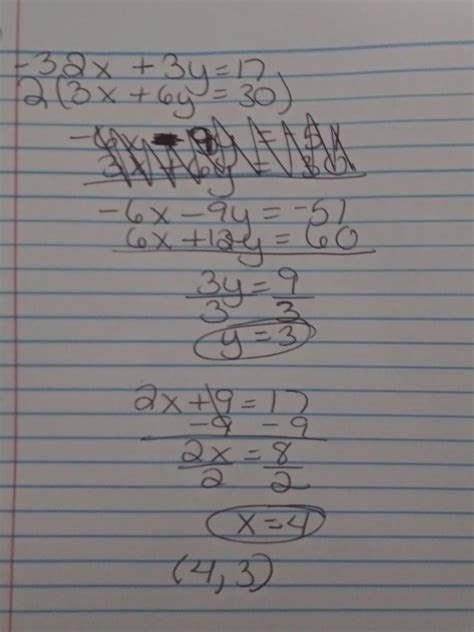 -3 2x + 3y = 17
2(3x + 6y = 30)
-6x - 9y = -51
6x + 12y = 60
3y = 9
3 3
y = 3
2x + 9 = 17
-9 -9
2x = 8
2 2
x = 4
(4, 3)